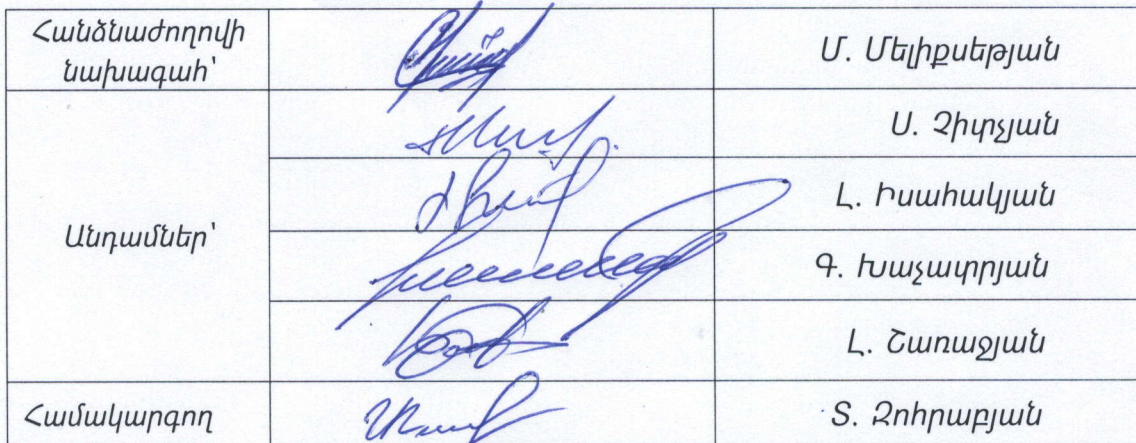 Հանձնաժողովի
նախագահ՝
Մ. Մելիքսեթյան
Անդամներ՝
Ս. Չիտչյան
Լ. Իսահակյան
Գ. Խաչատրյան
Լ. Շառաջյան
Համակարգող
Տ. Զոհրաբյան